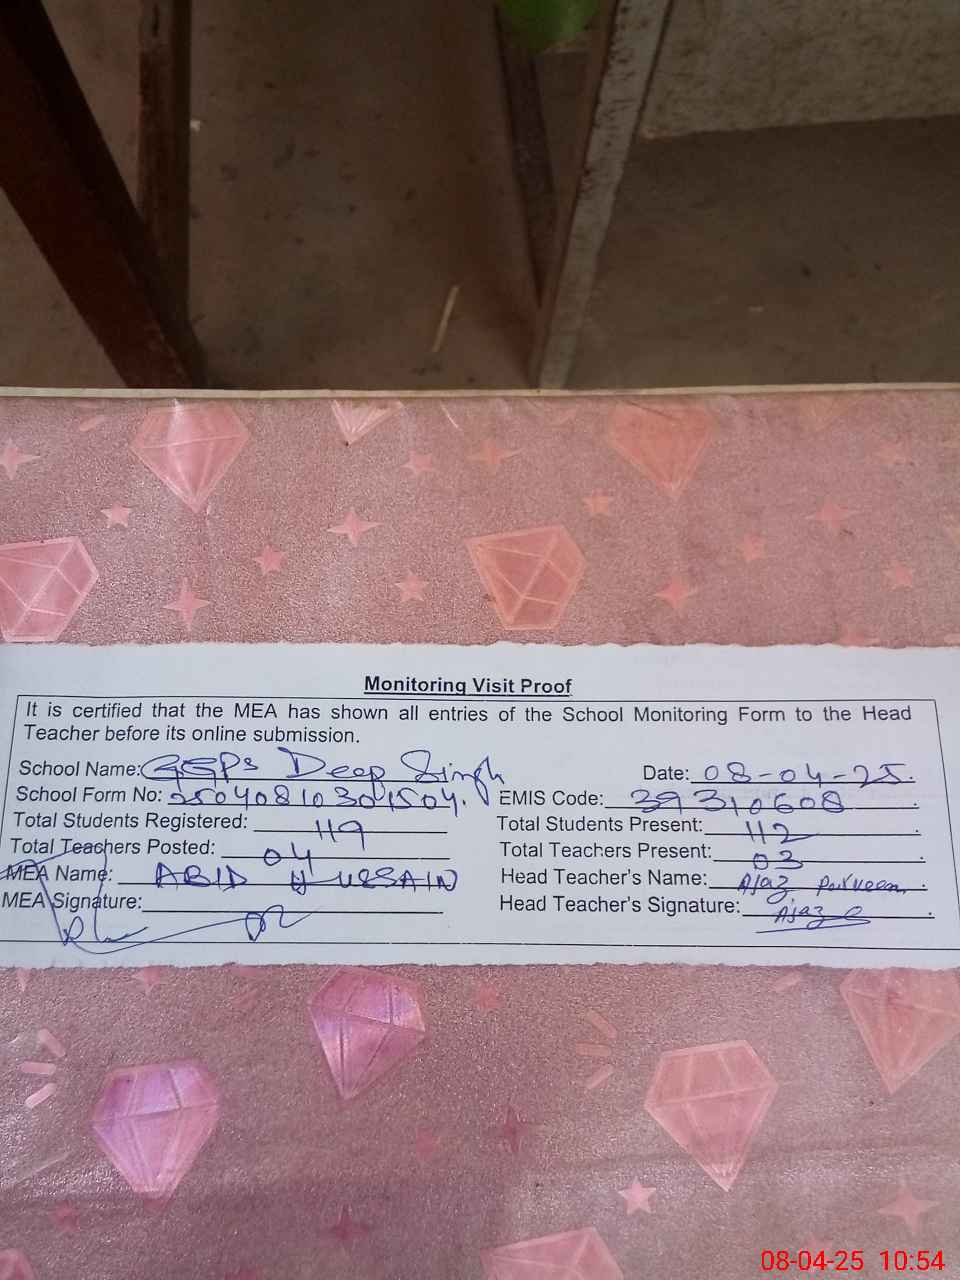 Monitoring Visit Proof
It is certified that the MEA has shown all entries of the School Monitoring Form to the Head
Teacher before its online submission.
School Name: GGPS Deep Singh Date: 08-04-25.
School Form No: 25040810301504. EMIS Code: 39310608.
Total Students Registered: 119 Total Students Present: 112.
Total Teachers Posted: 04 Total Teachers Present: 03.
MEA Name: ABID HUSSAIN Head Teacher's Name: Ajaz Parveen.
MEA Signature: Head Teacher's Signature: Ajaz.
08-04-25 10:54